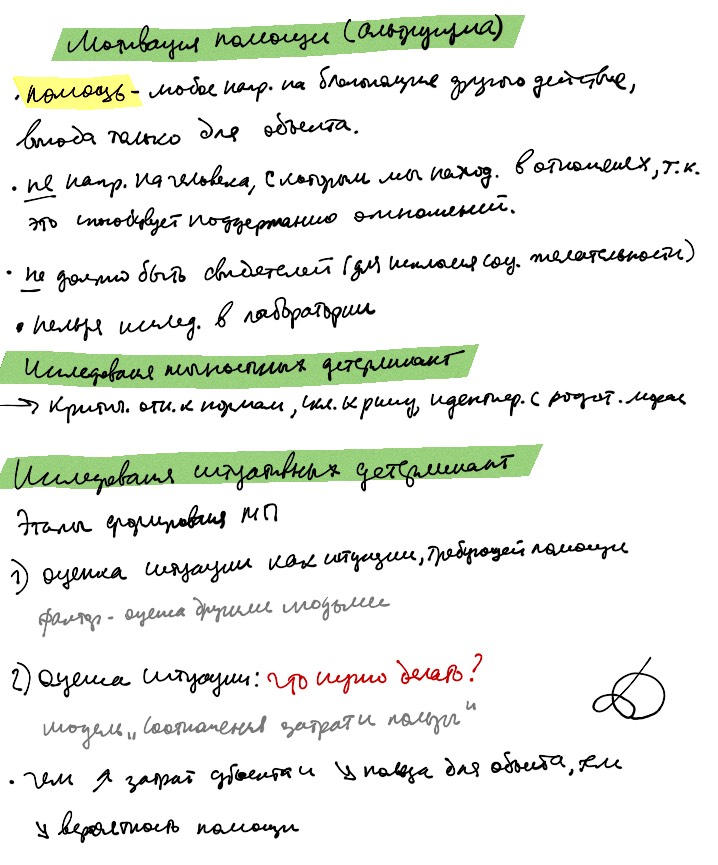 Мотивация помощи (альтруизма)
• помощь - любое напр. на благополучие другого действие,
выгода только для объекта.
• не напр. на человека, с которым мы наход. в отношениях, т.к.
это способствует поддержанию отношений.
• не должно быть свидетелей (для исключения соц. желательности)
• нельзя исслед. в лаборатории
Исследования личностных детерминант
→ Критич. отн. к нормам, скл. к риску, идентиф. с родит. морал
Исследования ситуативных детерминант
Этапы формирования МП
1) оценка ситуации как ситуации, требующей помощи
фактор - оценка другими людьми
2) Оценка ситуации: что нужно делать?
модель "соотношения затрат и пользы"
• чем ↗ затрат субъекта и ↘ польза для объекта, тем
↘ вероятность помощи